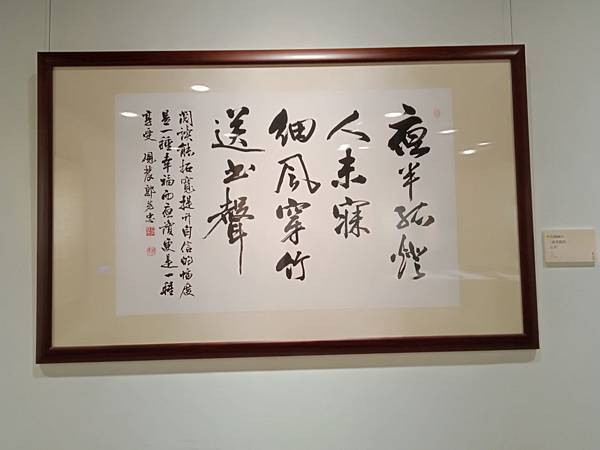 夜半孤燈
人未寐
細風穿竹
送書聲
閱讀能拓寬提升自信的幅度
是一種幸福而夜讀更是一種
享受 風農 郭芳忠